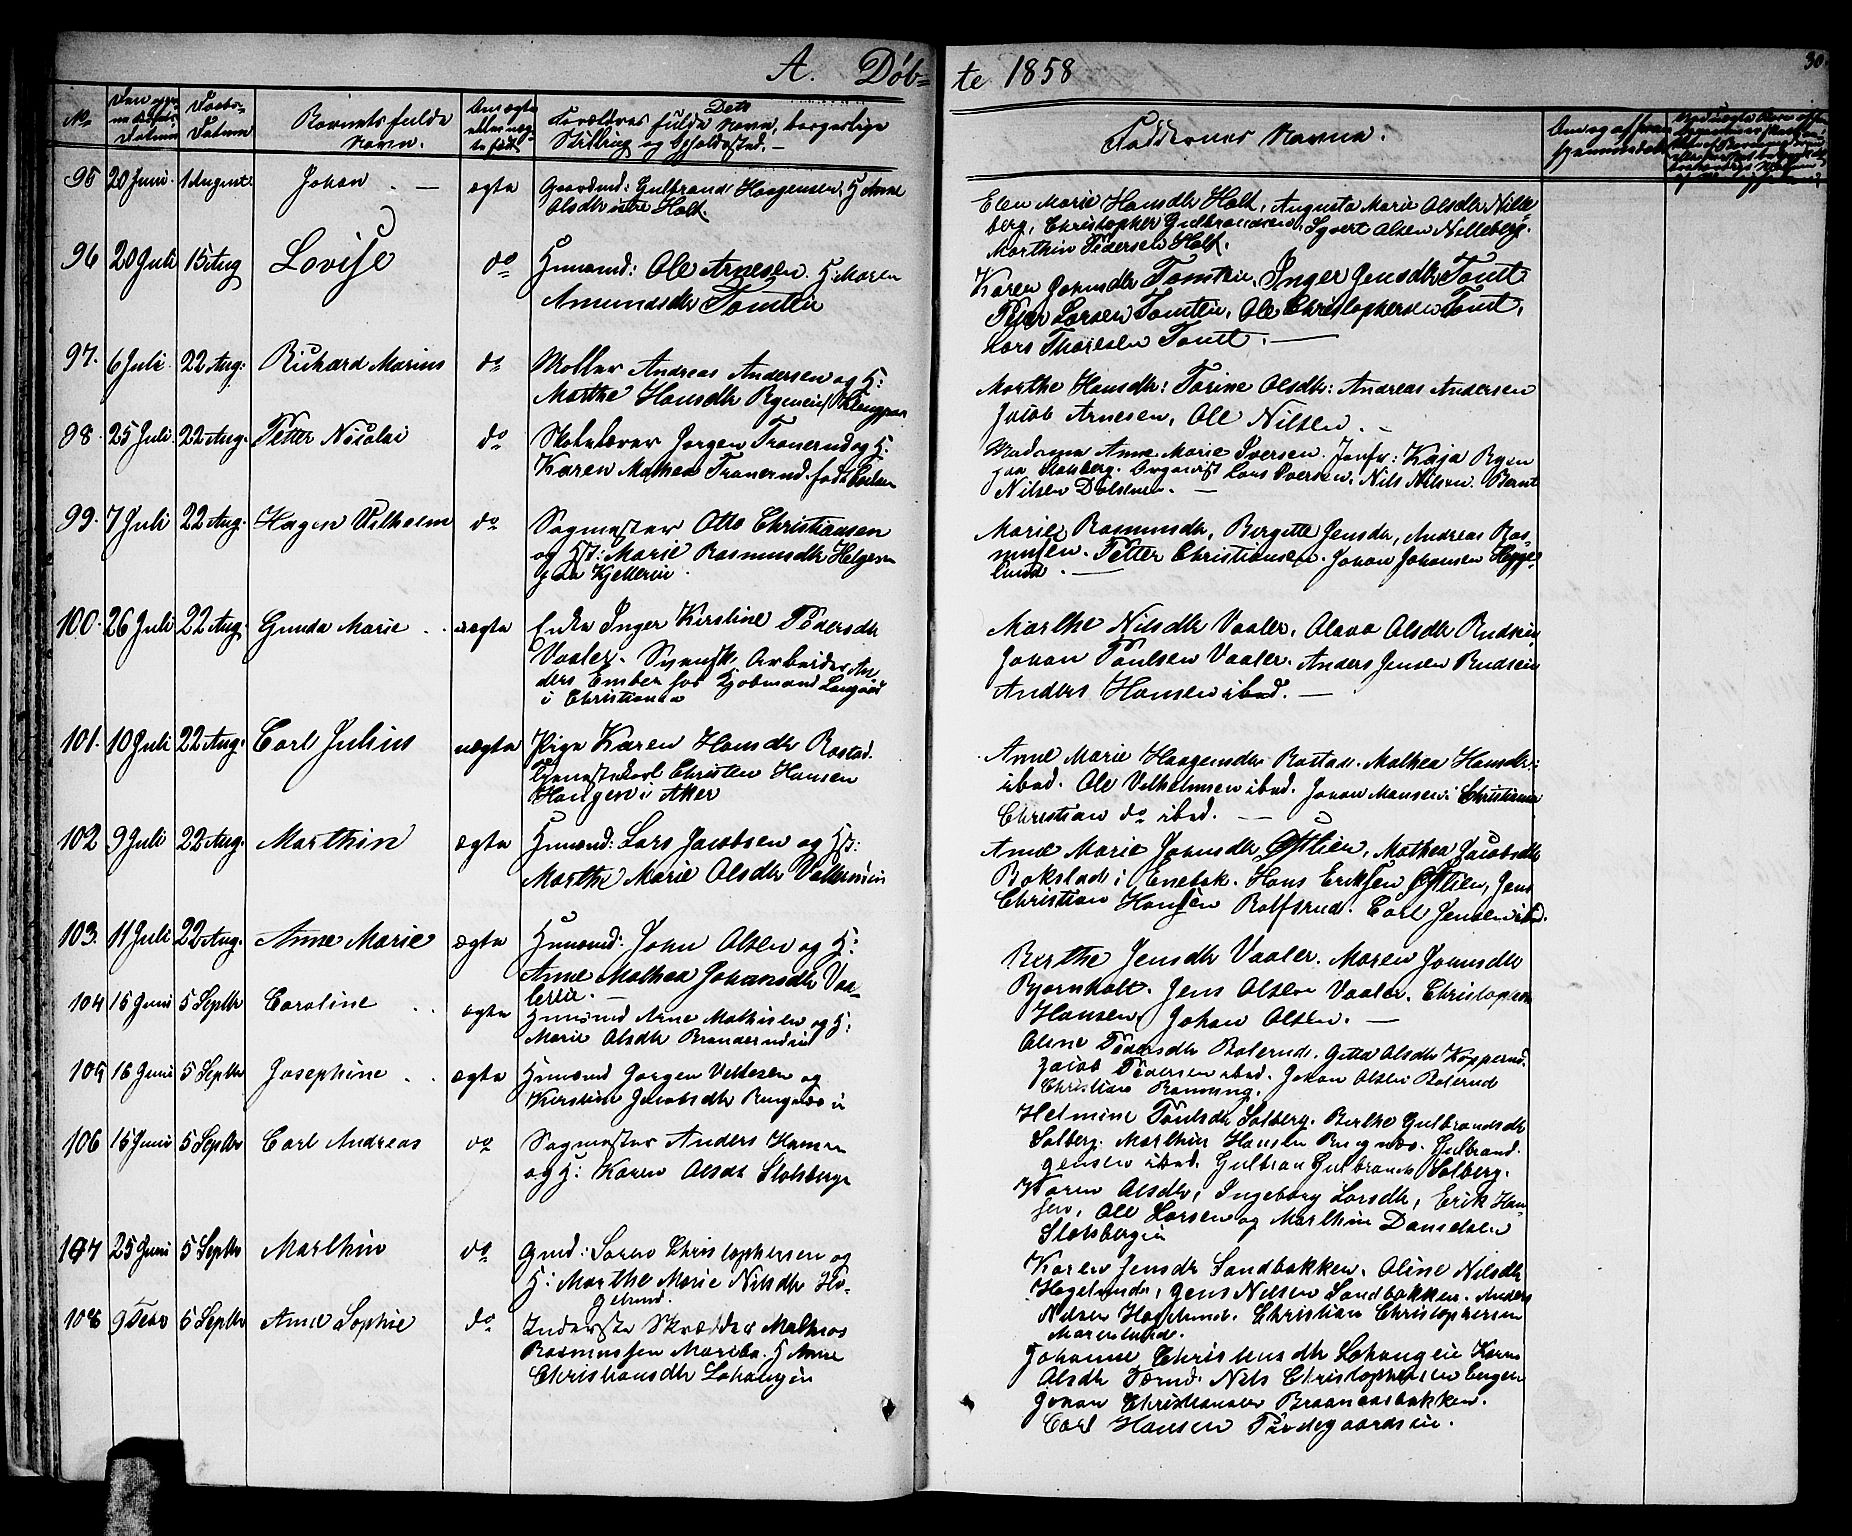 A. Døb-
te 1858
30.
No
Datum
Daabs-
Datum
Barnets fulde
Navn.
Om ægte
eller uæg-
te født
Forældres fulde Navn, borgerlige
Stilling og Opholdssted. —
Faddernes Navne.
95 20 Juni. 1 August. Johan. — ægte Gaardmd: Gulbrand Haagensen, H Anne
Olsdtr Holt.
Elen Marie Hansdtr Holt, Augusta Marie Olsdtr Nille
berg, Christopher Gulbrandsen, Syvert Olsen Nilleberg.
Marthin Pedersen Holt.
96 20 Juli 15 Aug Lovise do Husmand: Ole Arnesen. H Maren
Amundsdtr Tomten
Karen Johnsdtr Tomten, Inger Jensdtr Tomt
Peter Larsen Tomten, Ole Christophersen Tomt,
Lars Thoresen Tomt. —
97. 6 Juli. 22 Aug: Richard Marius do Møller Andreas Andersen og H:
Marthe Hansdtr
Marthe Hansdtr: Torine Olsdtr: Andreas Andersen
Jacob Arnesen, Ole Nilsen. —
98. 25 Juli. 22 Aug. Petter Nicolai do Skolelærer Jørgen Tranerud og H:
Karen Mathea Tranerud. født
Madame Anne Marie Iversen. Jomfr: Kaja Ryen
paa Organist Lars Iversen, Nils Nilsen. Bernt
Nilsen
99. 7 Juli 22 Aug. Hagen Vilhelm do Sagmester Otto Christiansen
og Hst: Marie Rasmusdtr Helgesen
paa Kjelleren.
Marie Rasmusdtr, Birgitte Jensdtr, Andreas Ras-
musen. Petter Christiansen. Johan Johansen Hegge
lund. —
100. 26 Juli 22 Aug. Gunda Marie . . uægte Enke Inger Kirstine Pedersdtr
Vaaler. Svensk Arbeider An
ders Ember for Kjøbmand
i Christiania
Marthe Nilsdtr Vaaler, Olava Olsdtr Rudsein
Johan Poulsen Vaaler. Anders Jensen Rudsein
Anders Hansen ibid. —
101. 10 Juli 22 Aug. Carl Julius uægte Pige Karen Hansdtr Rostad.
Tjenestekarl Christen Hansen
Haugen i Aker
Anne Marie Haagensdtr Rostad. Mathea Hansdtr:
ibid. Ole Vilhelmsen ibid. Johan Hansen i Christiania
Christian do ibid. —
102 9 Juli 22 Aug. Marthin ægte Husmd: Lars Jacobsen og Hst:
Marthe Marie Olsdtr
Anne Marie Johnsdtr Østlien, Mathea Jacobsdtr
Bakstad i Enebak. Hans Eriksen Østlien, Jens
Christian Hansen Rolfsrud. Carl Jensen ibid.
103. 11 Juli 22 Aug. Anne Marie ægte Husmd: John Olsen og H:
Anne Mathea Johansdtr Vaa-
lerein. —
Berthe Jensdtr Vaaler. Maren Johnsdtr
Bjørnholt. Jens Olsen Vaaler. Christopher
Hansen, Johan Olsen. —
104 15 Juni 5 Septbr Caroline . . ægte Husmd Arne Mathisen og H:
Marie Olsdtr Branderudeie
Oline Pedersdtr Bolerud. Gitta Olsdtr Kopperud.
Jacob Pedersen ibid. Johan Olsen Bolerud
Christian Ramung.
105 16 Juni 5 Septbr Josephine . . ægte Husmd Jørgen Veltesen og
Kirstine Jacobsdtr
Helmine Poulsdtr Solberg. Berthe Gulbrandsdtr
Solberg. Marthin Hansen Gulbrand
Jensen ibid. Gulbran Gulbrands Solberg.
106 15 Juni 5 Septbr Carl Andreas do Sagmester Anders Hansen
og H: Karen Olsdt Slotsberge
Karen Olsdtr, Ingeborg Larsdtr, Erik Han-
sen, Ole Larsen og Marthin Danielsen
Slotsbergein
107 25 Juni 5 Septbr Marthin do Gmd: Søren Christophersen og
H: Marthe Marie Nilsdtr Ho-
gelund.
Karen Jensdr Sandbakken. Oline Nilsdtr
Hogelund, Jens Nilsen Sandbakken. Anders
Nilsen Hogelund. Christian Christophersen
108 9 Febr 5 Septbr Anne Sophie do Inderste Skrædder Mathias
Rasmussen H Anne
Christiansdtr
Johanne Christiansdtr Karen
Olsdtr Nils Christophersen Engen
Johan Christiansen Braanaasbakken.
Carl Hansen